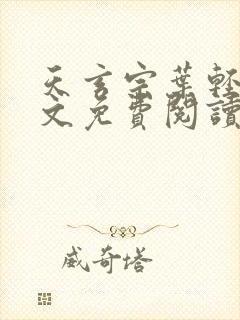 天玄宗葉輕
文免費閱讀
威奇塔